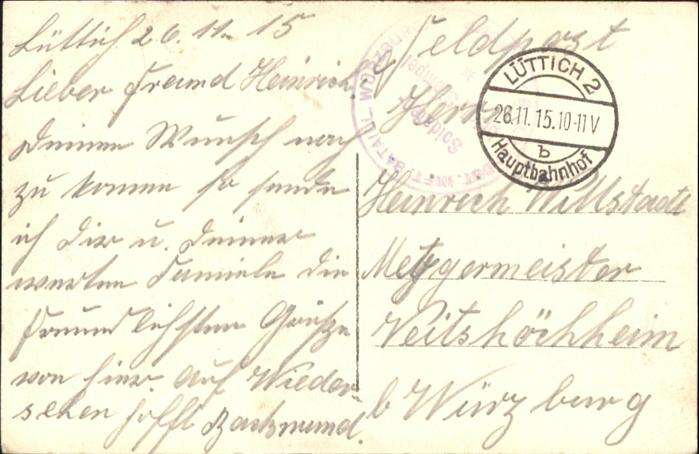 Lüttich 26. 11. 15
Lieber Freund Heinrich.
Deinen Wunsch nach
zu komen so sende
ich Dir u. Deiner
werten Famiele die
freundlichsten Grütze
von hier. Auf Wieder-
sehen hofft
Feldpost
Herrn
Heinrich Willstadt
Metzgermeister
Veitshöchheim
b Würzburg
LÜTTICH 2
26.11.15.10-11V
b
Hauptbahnhof
Soldaten